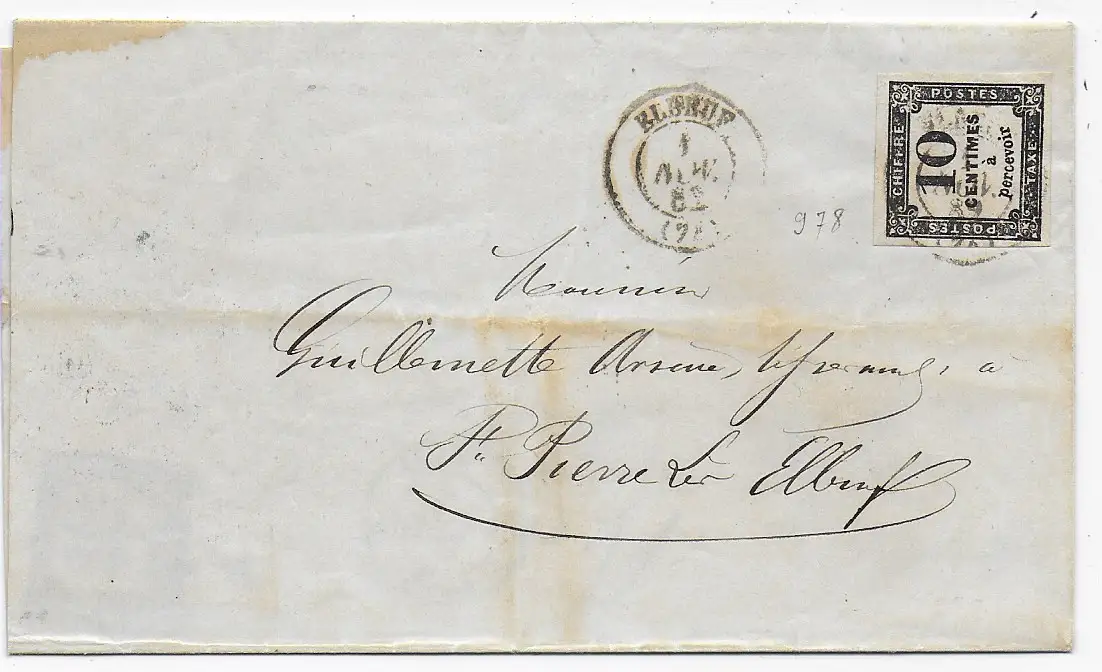 ELBEUF
1
NOV.
62
(74)
978
POSTES
CHIFFRE
TAXE
10
CENTIMES
à
percevoir
POSTES
Monsieur
Guillemette Arsène, à
St. Pierre Les Elbeuf